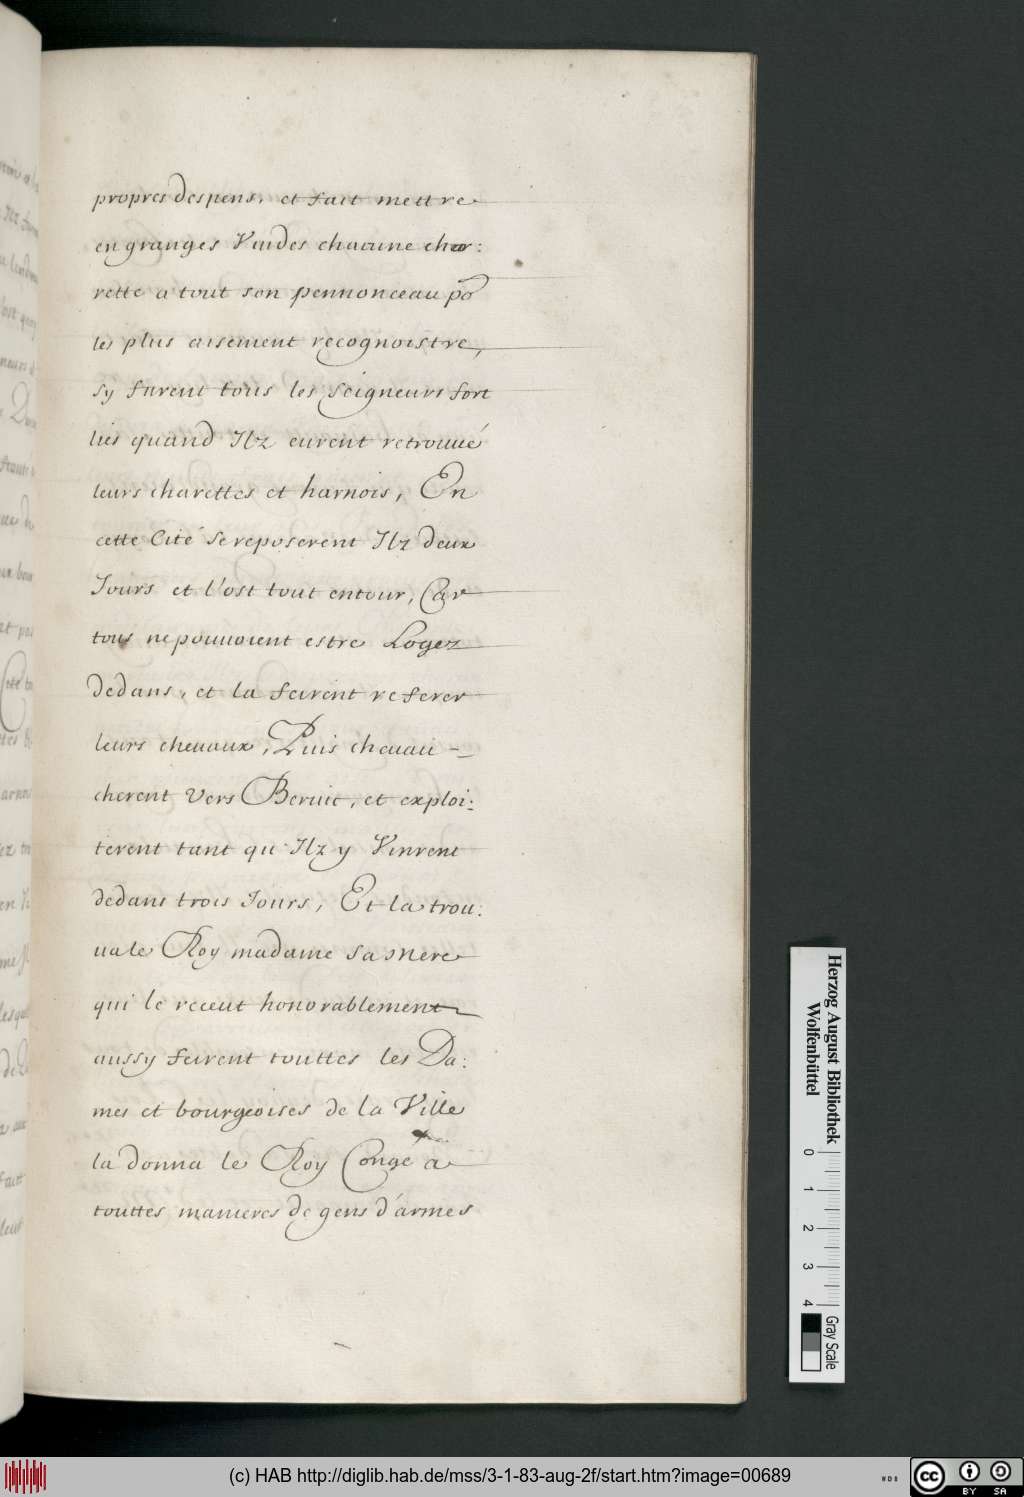 propres despens, et fait mettre
en granges Vuides chacune char:
rette a tout son pennonceau po
les plus aisement recognoistre,
sy furent tous les seigneurs fort
lies quand Ilz eurent retrouué
leurs charettes et harnois, En
cette Cité se reposerent Ilz deux
Jours et l'ost tout entour, Car
tous ne pouuoient estre Logez
dedans, et la feirent referer
leurs cheuaux, Puis cheuau-
cherent Vers Beruic, et exploi:
terent tant qu'Ilz y Vinrent
dedans trois Jours, Et la trou:
ua le Roy madame sa mere
qui le receut honorablement
aussy feirent touttes les Da:
mes et bourgeoises de la Ville
la donna le Roy Congé a
touttes manieres de gens d'armes
Herzog August Bibliothek
Wolfenbüttel
0 1 2 3 4
Gray Scale
(c) HAB http://diglib.hab.de/mss/3-1-83-aug-2f/start.htm?image=00689
WDB
cc BY SA